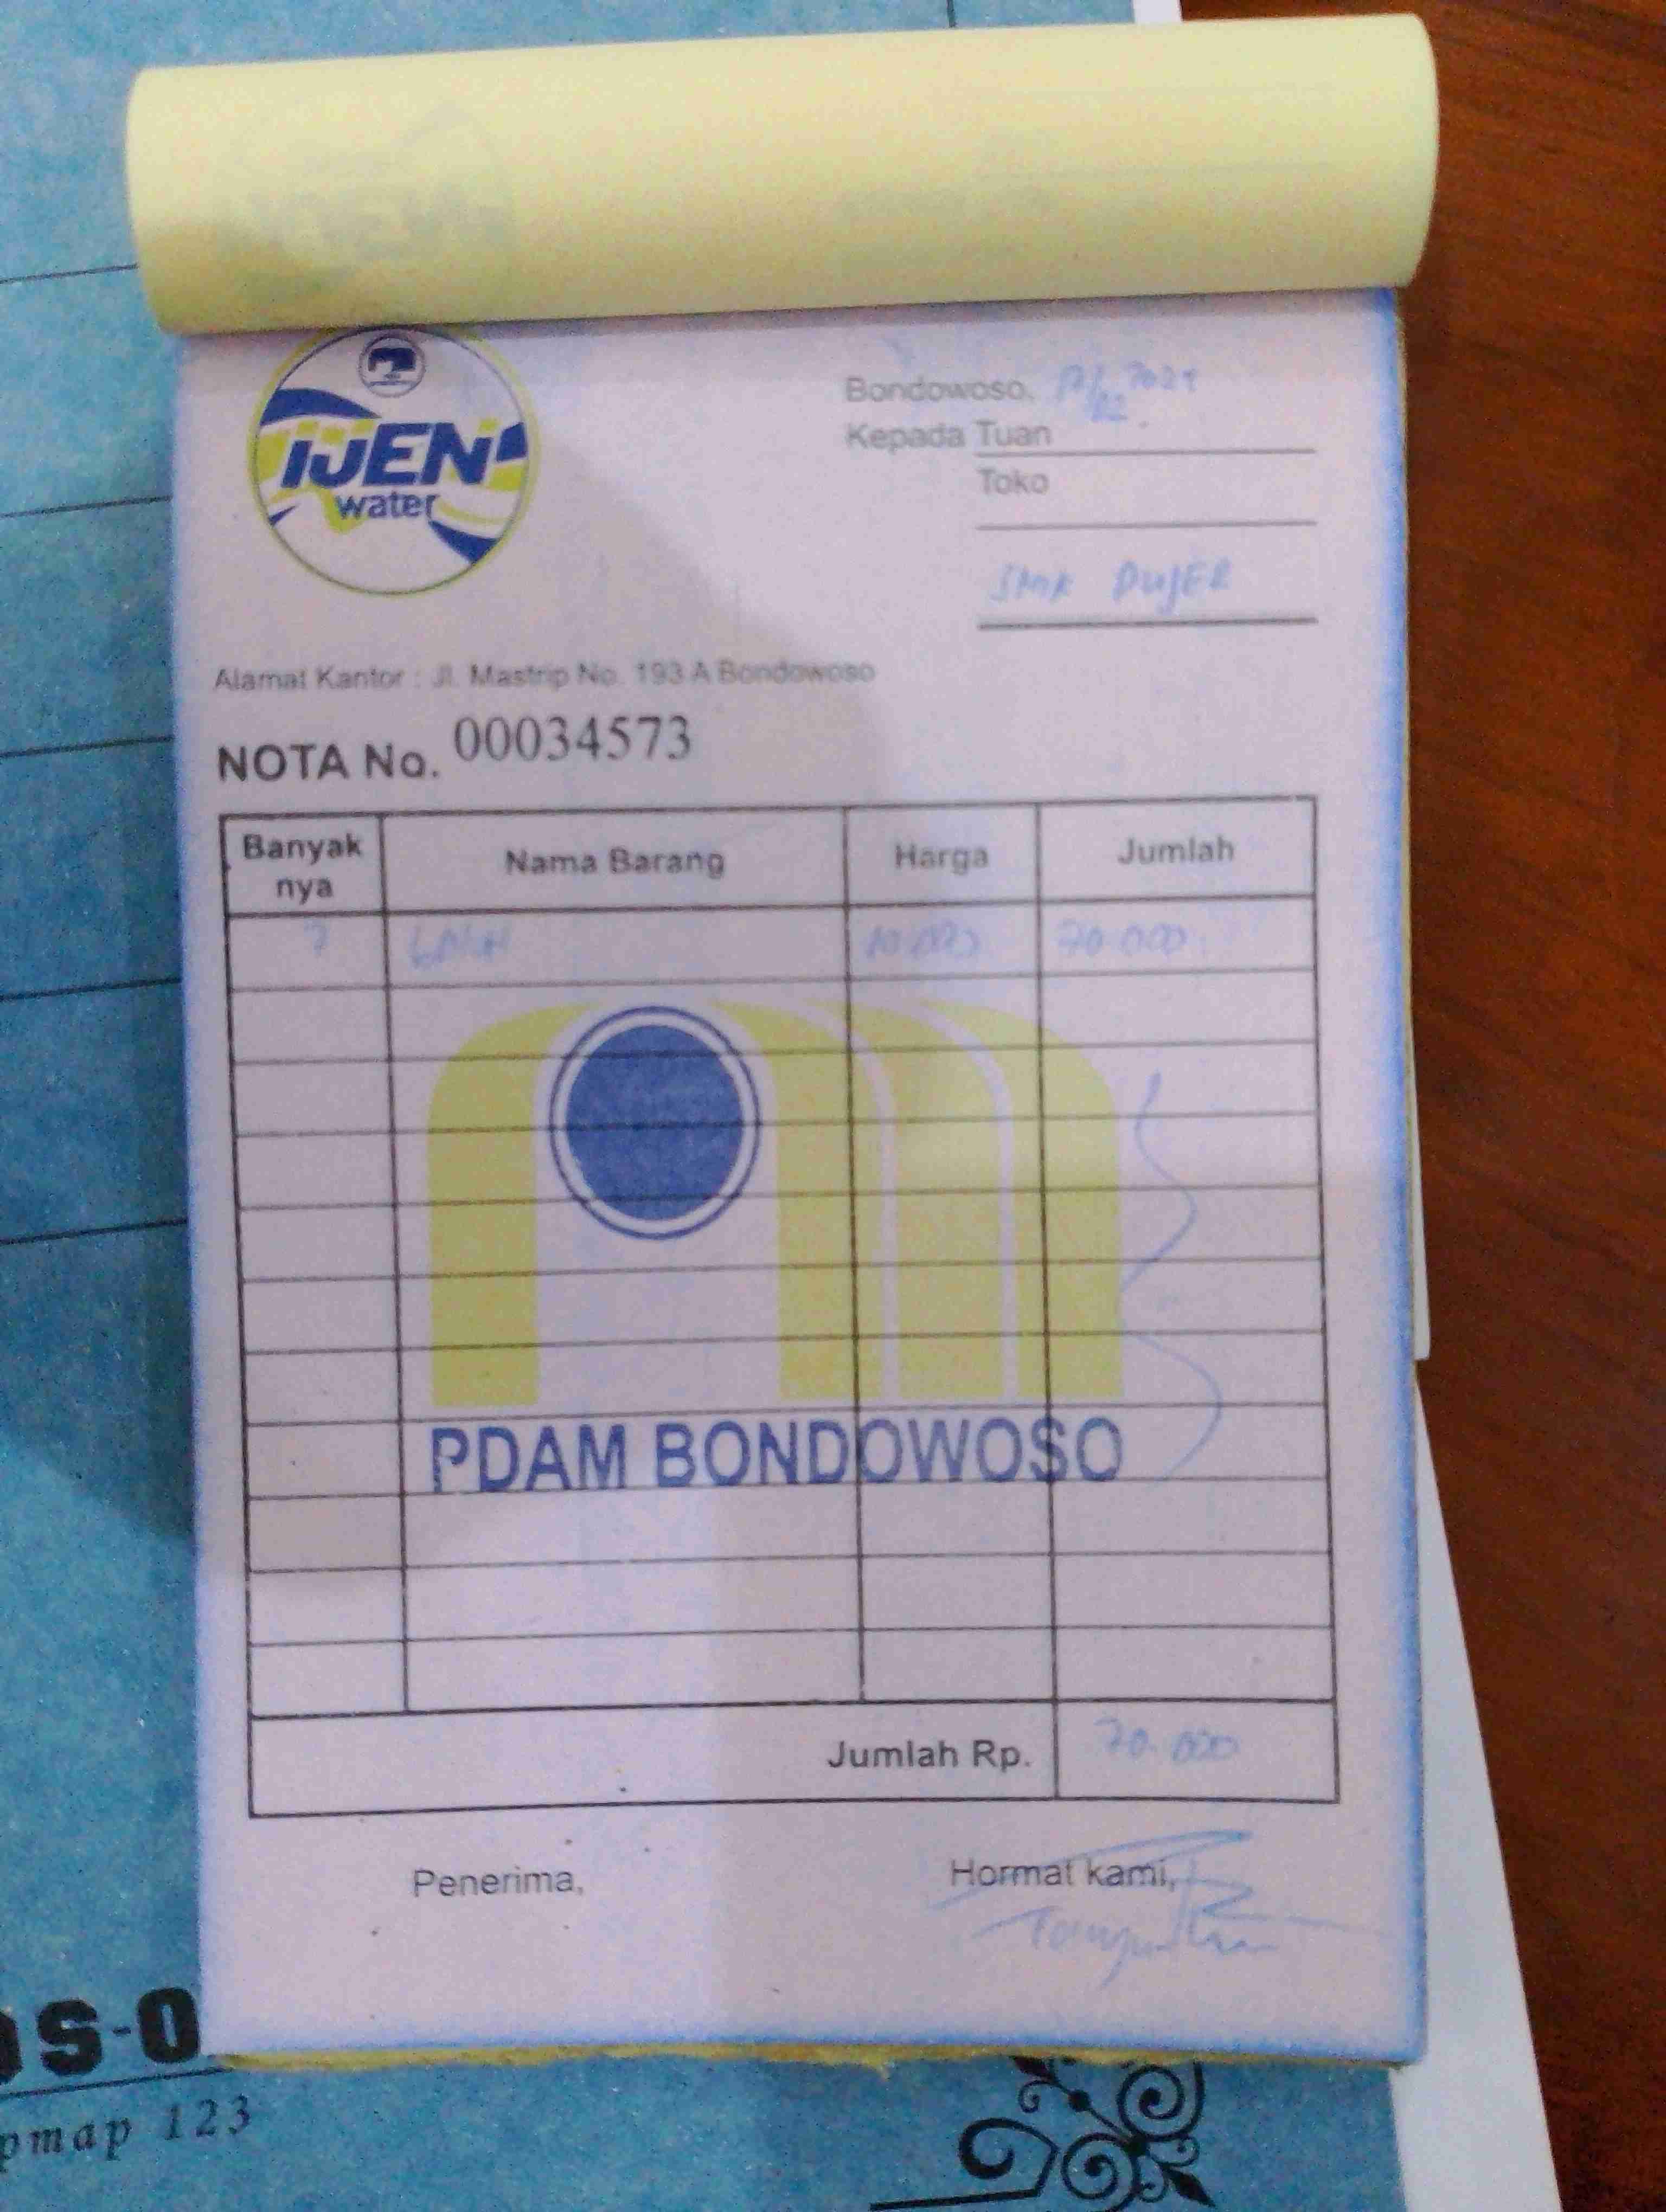 IJEN
water
Bondowoso, 2024
12
Kepada Tuan
Toko
SMK PUJER
Alamat Kantor : Jl. Mastrip No. 193 A Bondowoso
NOTA No. 00034573
Banyak nya Nama Barang Harga Jumlah
7 10.000 70.000
PDAM BONDOWOSO
Jumlah Rp. 70.000
Penerima, Hormat kami,
as-O
pmap 123